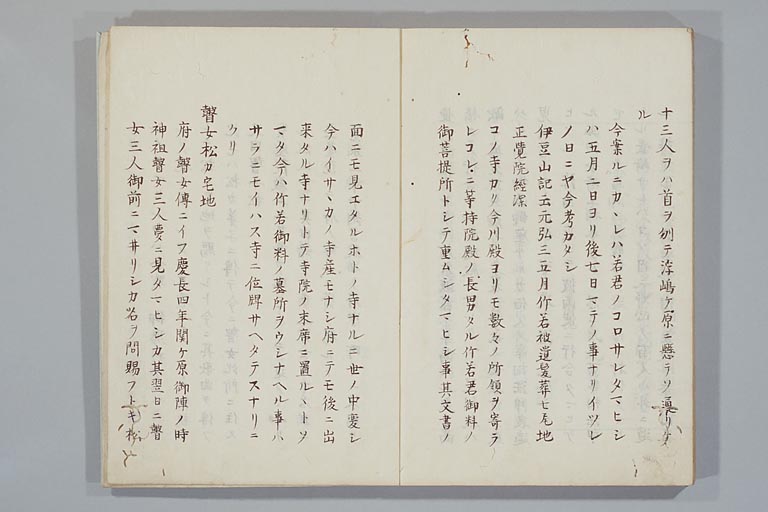 十三人ヲハ首ヲ刎テ浮嶋ケ原ニ懸テソ通リケ
ル
今案ルニカヽレハ若君ノコロサレタマヒシ
ハ五月二日ヨリ後七日マテノ事ナリイツレ
ノ日ニヤ今考カタシ
伊豆山記云元弘三五月竹若被遺髪葬七尾地
正覚院経深
コノ寺カク今川殿ヨリモ数々ノ所領ヲ寄ラ
レコレニ等持院殿ノ長男タル竹若君御料ノ
御菩提所トシテ重ムシタマヒシ事其文書ノ
面ニモ見エタルホトノ寺ナルニ世ノ中変シ
今ハイサヽカノ寺産モナシ府ニテモ後ニ出
来タル寺ナリトテ寺院ノ末席ニ置ルヽトソ
マタ今ハ竹若御料ノ墓所ヲウシナヘル事ハ
サラニモイハス寺ニ位牌サヘタテスナリニ
タリ
瞽女松カ宅地
府ノ瞽女傳ニイフ慶長四年関ケ原御陣ノ時
神祖瞽女三人夢ニ見タマヒシカ其翌日ニ瞽
女三人御前ニマ井リシカ名ヲ問賜フトモ松